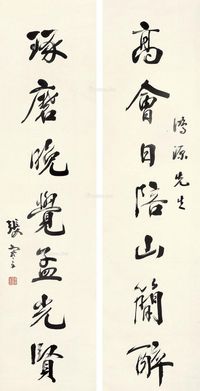 高會日陪山簡醉
鴻源先生
琢磨晚覺孟光賢
張